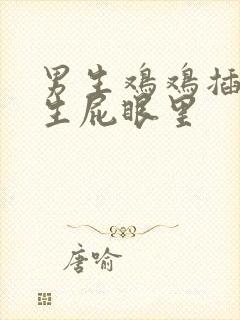 男生鸡鸡插
生屁眼里
唐喻